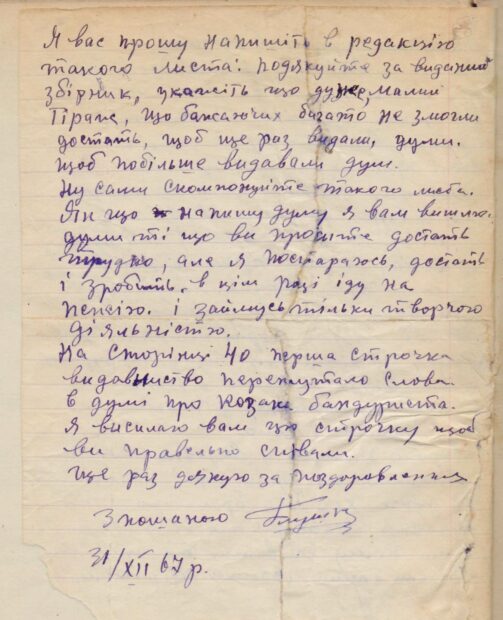 Я вас прошу напишіть в редакцію
такого листа. подякуйте за виданий
збірник, укажіть що дуже малий
Тіраж, що бажаючих багато не змогли
достать, щоб ще раз видали, думи.
щоб побільше видавали дум.
Ну самі скомпонуйте такого листа.
Як що напишу думу я вам вишлю.
думи ті що ви просите достать
трудно, але я постараюсь, достать
і зробить, в цім році іду на
пенсію. і займусь тільки творчою
діяльністю.
На сторінці 40 перша строчка
видавництво перепутало слова
в думі про козака бандуриста.
я висилаю вам цю строчку щоб
ви правельно співали.
ще раз дякую за поздоровлення
З пошаною
31/XII 67 р.